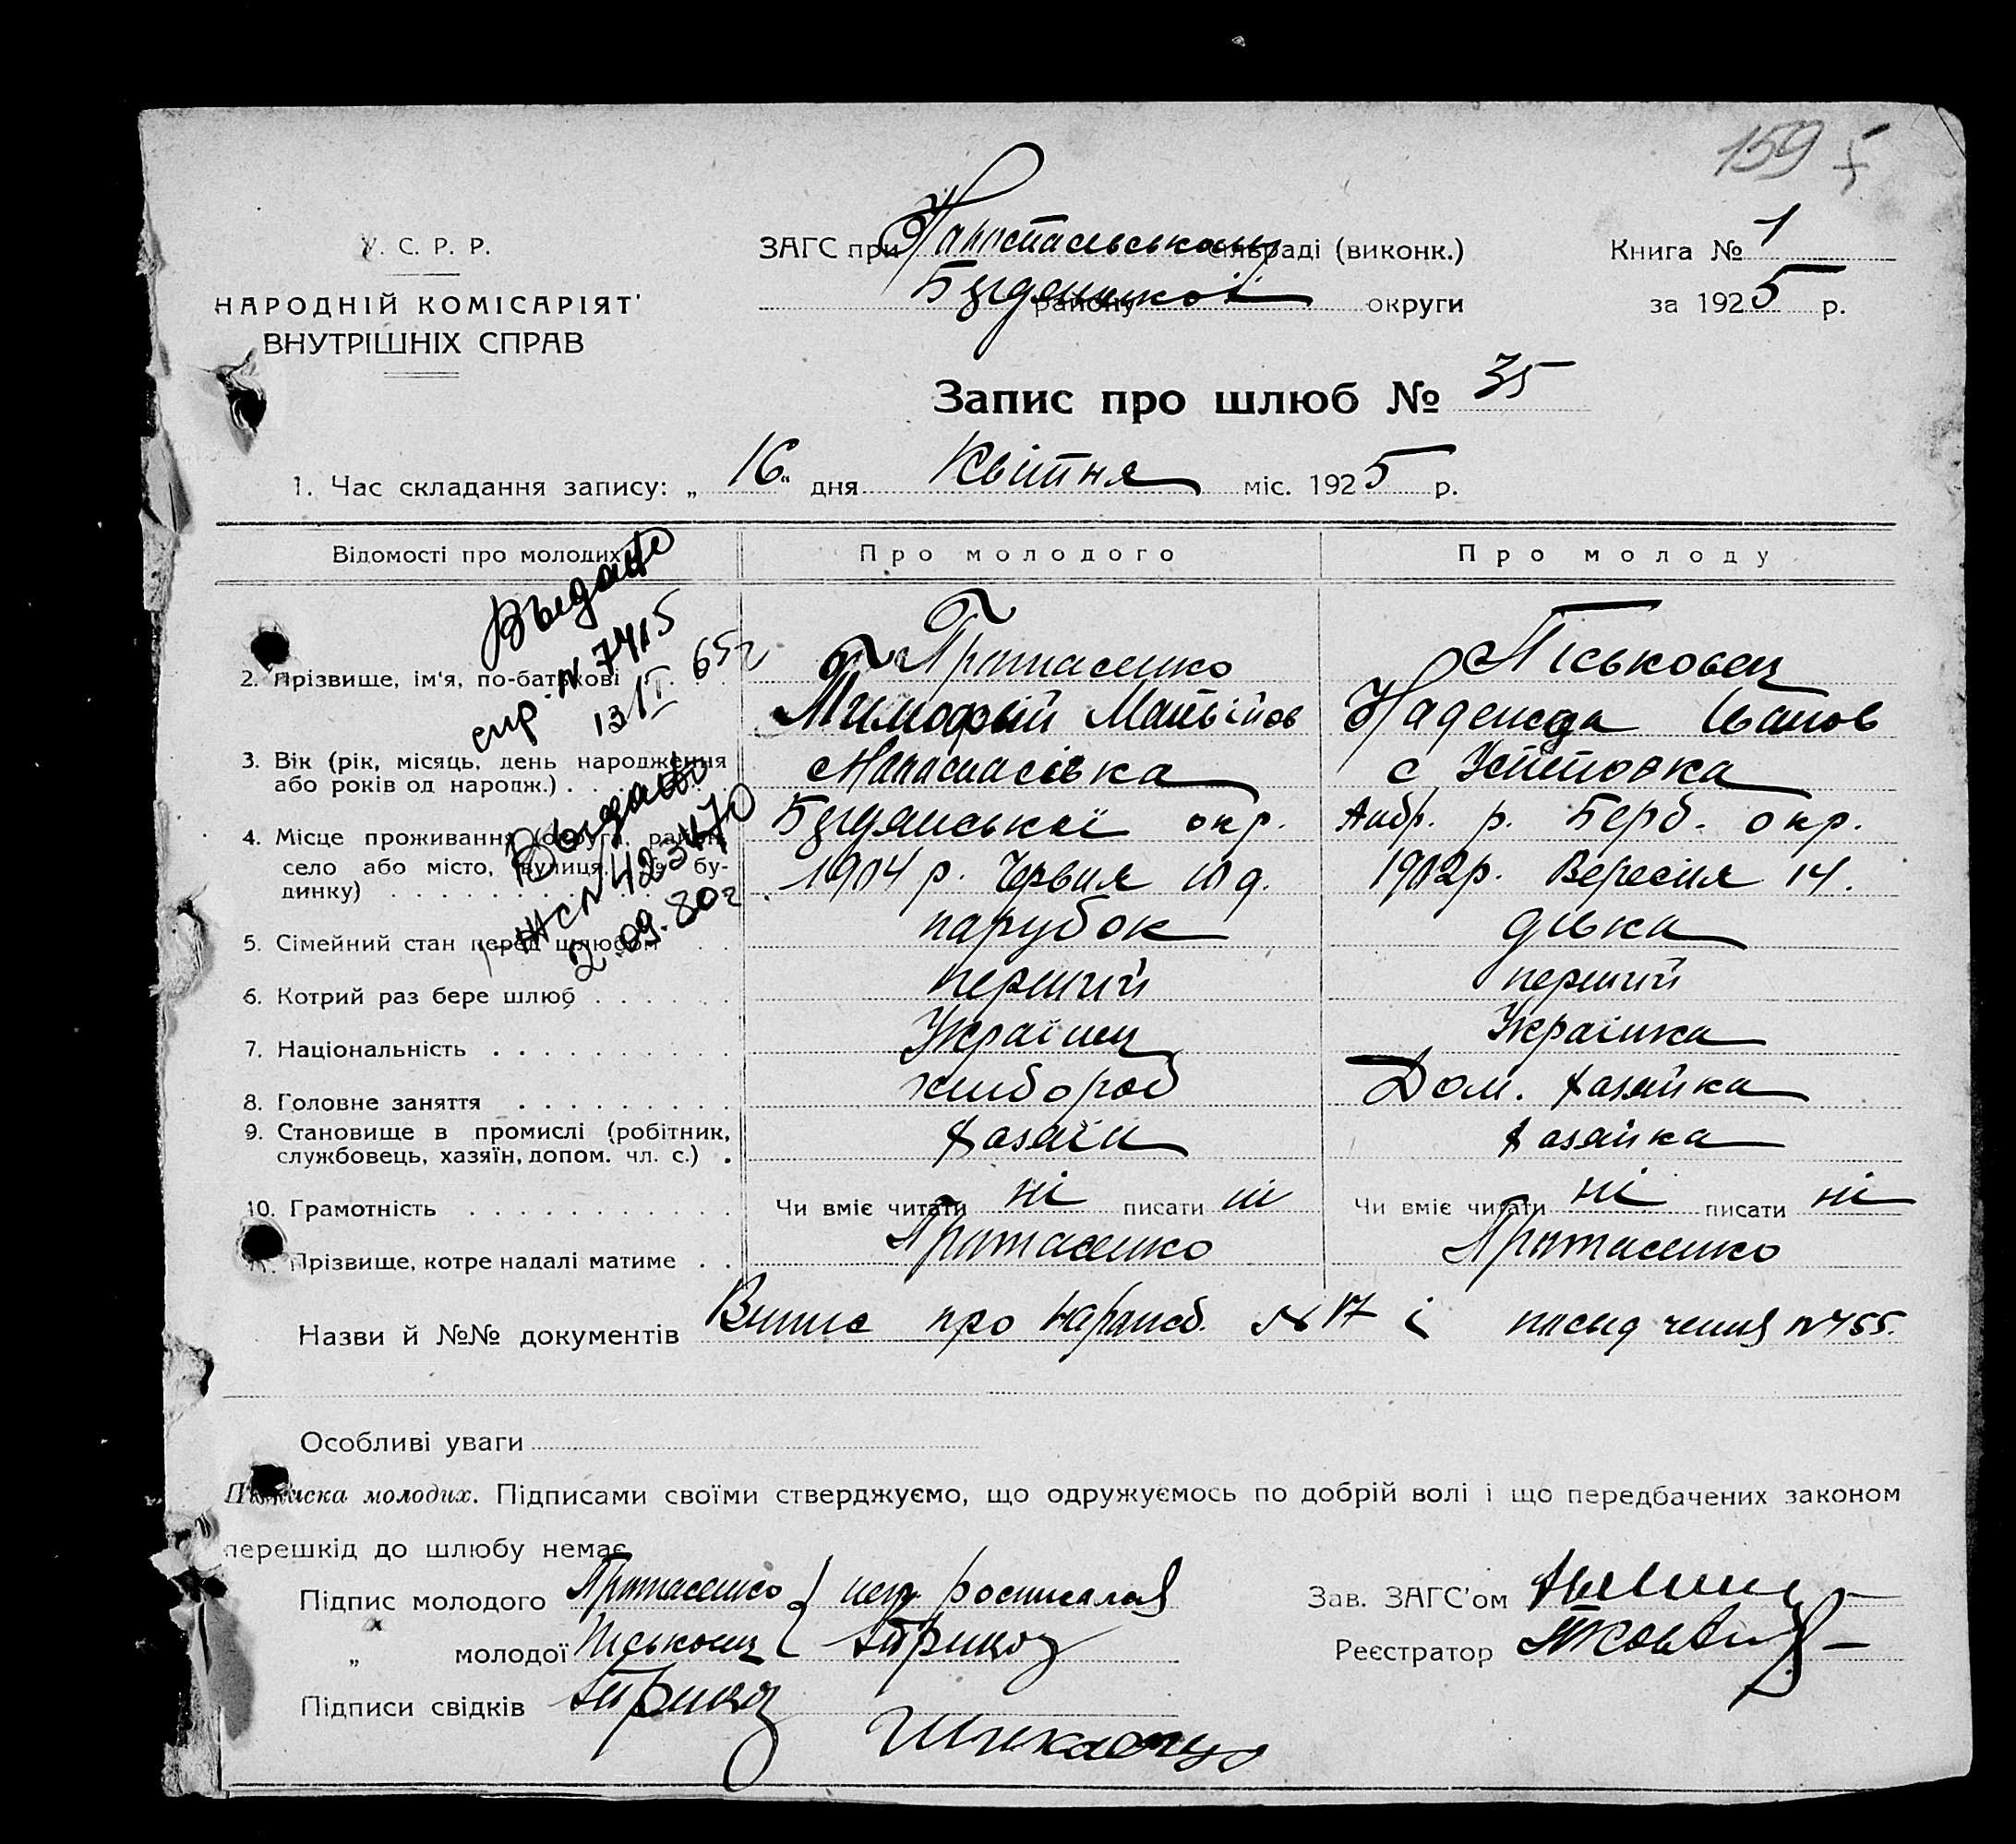 159
У. С. Р. Р.
НАРОДНІЙ КОМІСАРІЯТ
ВНУТРІШНІХ СПРАВ
ЗАГС при сільраді (виконк.)
району округи
Книга № 1
за 1925 р.
Запис про шлюб № 35
1. Час складання запису: „ 16 " дня Квітня міс. 1925 р.
Відомості про молодих
Про молодого
Про молоду
Выдано
спр. N 7415
13/I 65г
Выдано
423470
2.09.80г
2. Прізвище, ім'я, по-батькові
Протасенко
Тимофій Матвійов
Піськовец
Надежда Іванов
3. Вік (рік, місяць, день народження
або років од народж.)
с
4. Місце проживання (округа, район,
село або місто, вулиця, № бу-
динку)
окр.
р. Берд. окр.
1904 р. Червня 10 д.
1902р. Вересня 14.
5. Сімейний стан перед шлюбом
парубок
дівка
6. Котрий раз бере шлюб
перший
перший
7. Національність
Українец
Українка
8. Головне заняття
хлібороб
Дом. хазяйка
9. Становище в промислі (робітник,
службовець, хазяїн, допом. чл. с.)
хазяїн
хазяйка
10. Грамотність
Чи вміє читати ні писати ні
Чи вміє читати ні писати ні
11. Прізвище, котре надалі матиме
Протасенко
Протасенко
Назви й №№ документів Випис про народж. N 17 і посвідчення N 755.
Особливі уваги
Підписка молодих. Підписами своїми стверджуємо, що одружуємось по добрій волі і що передбачених законом
перешкід до шлюбу немає
Підпис молодого Протасенко
„ молодої Піськовец
Підписи свідків
Зав. ЗАГС'ом
Реєстратор